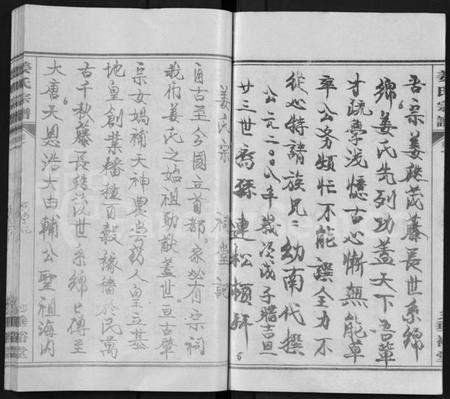 姜氏宗譜
吾宗姜族茂藤長世系綿
綿姜氏先列功蓋天下吾輩
才疏學浅憶古心慚無能草
率公务煩忙不能譔全力不
從心特請族兄幼南代撰
公元二〇〇八年歲次戊子腊吉旦
廿三世裔孫連松頓拜
三聖裕堂
姜氏宗譜
姜氏宗祠堂記
自古至今國立首都家必有宗祠
我衍姜氏之始祖勛猷蓋世亘古肇
宗女媧補天神農嘗葯人皇立基
地皇創業播種百穀稼穡於民萬
古千秋藤長綠以世系綿七傳至
大唐天恩浩大由輔公聖祖海內